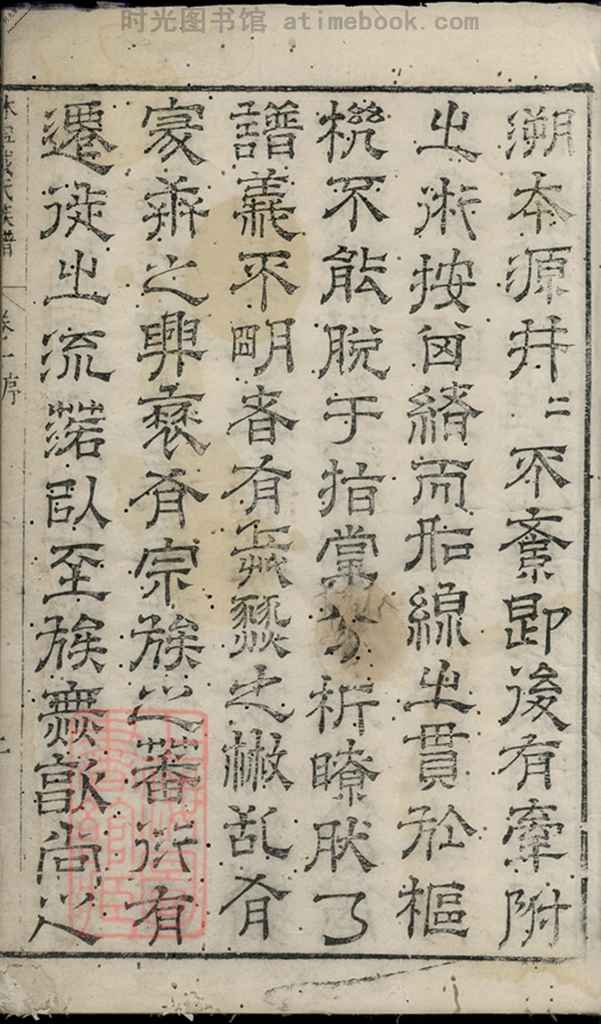 时光图书馆 atimebook.com
溯本源井二不紊即後有牽附
之術按図緒而形線之貫於樞
機不能脱于指掌分析瞭肰了
譜義不明者有之澉乱有
家乘之興褒有宗族之蕃衍有
遷徙之流落臥至族無歆尚之
氏族譜 卷一序